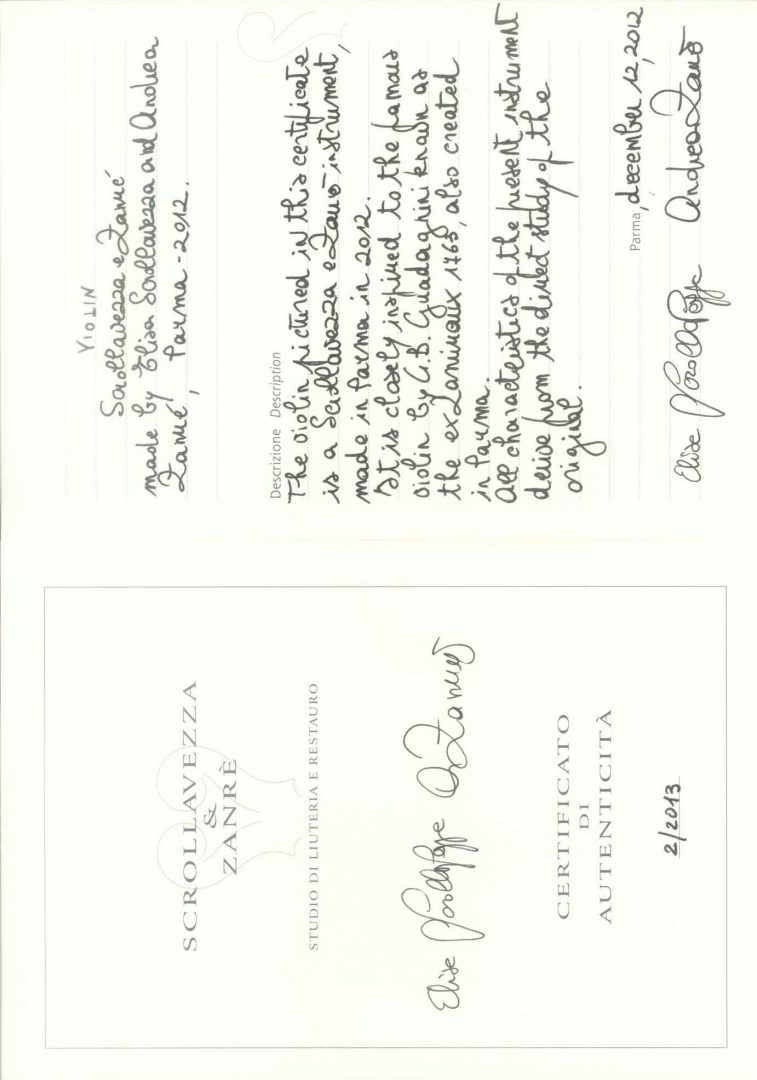 SCROLLAVEZZA
&
ZANRÈ
STUDIO DI LIUTERIA E RESTAURO
CERTIFICATO
DI
AUTENTICITÀ
2/2013
VIOLIN
Scrollavezza e Zanré
made by Elisa Scrollavezza and Andrea
Zanré, Parma - 2012.
Descrizione Description
The violin pictured in this certificate
is a Scrollavezza e Zanré instrument,
made in Parma in 2012.
It is closely inspired to the famous
violin by G.B. Guadagnini known as
the ex Lamiraux 1765, also created
in Parma.
All characteristics of the present instrument
derive from the direct study of the
original.
Parma, december 12, 2012
Elisa Andrea Zanré